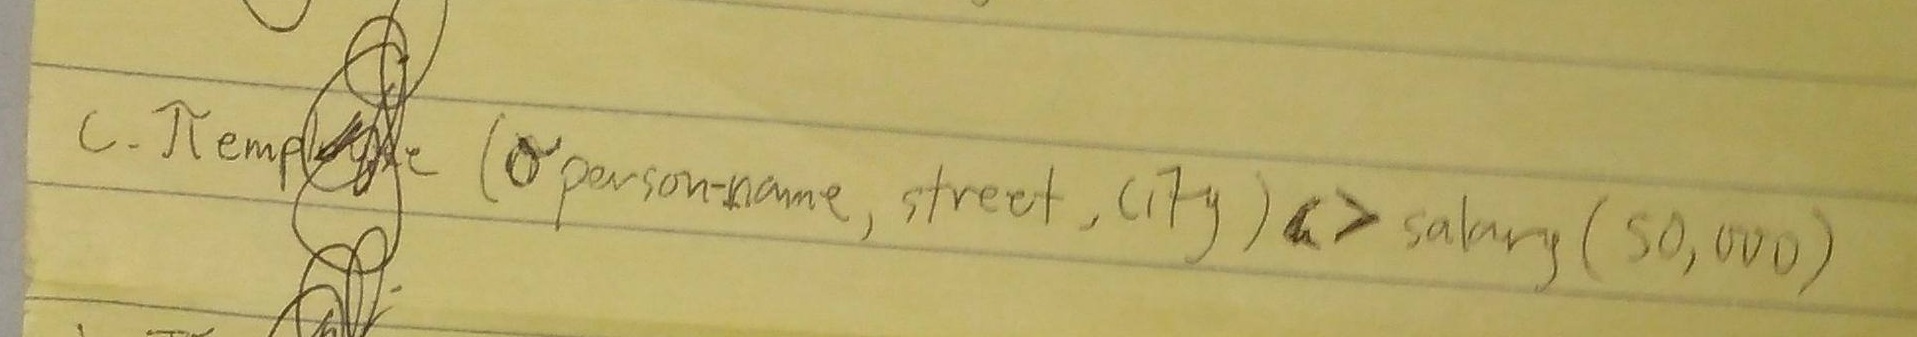 C. π employee (σ person-name, street, city) > salary (50,000)